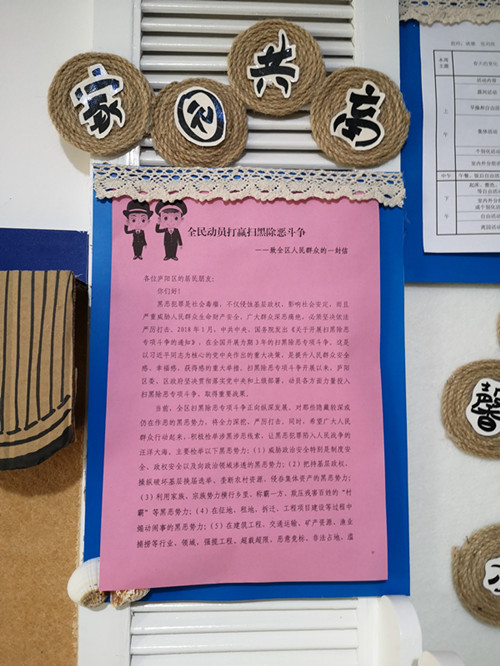 家园共育
全民动员打赢扫黑除恶斗争
——致全区人民群众的一封信
各位庐阳区的居民朋友：
你们好！
黑恶犯罪是社会毒瘤，不仅侵蚀基层政权，影响社会安定，而且
严重威胁人民群众生命财产安全，广大群众深恶痛绝，必须坚决依法
严厉打击。2018年1月，中共中央、国务院发出《关于开展扫黑除恶
专项斗争的通知》，在全国开展为期3年的扫黑除恶专项斗争，这是
以习近平同志为核心的党中央作出的重大决策，是提升人民群众安全
感、幸福感、获得感的重大举措。扫黑除恶专项斗争开展以来，庐阳
区委、区政府坚决贯彻落实党中央和上级部署，动员各方面力量投入
扫黑除恶专项斗争，取得重要战果。
当前，全区扫黑除恶专项斗争正向纵深发展，对那些隐藏较深或
仍在作恶的黑恶势力，将全力深挖、严厉打击。同时，希望广大人民
群众行动起来，积极检举涉黑涉恶线索，让黑恶犯罪陷入人民战争的
汪洋大海。主要检举以下黑恶势力：（1）威胁政治安全特别是制度安
全、政权安全以及向政治领域渗透的黑恶势力；（2）把持基层政权、
操纵破坏基层换届选举、垄断农村资源、侵吞集体资产的黑恶势力；
（3）利用家族、宗族势力横行乡里、称霸一方、欺压残害百姓的“村
霸”等黑恶势力；（4）在征地、租地、拆迁、工程项目建设等过程中
煽动闹事的黑恶势力；（5）在建筑工程、交通运输、矿产资源、渔业
捕捞等行业、领域，强揽工程、恶意竞标、非法占地、滥
馨
活动内容
晨间活动
上
午
集体活动
个别化活动
中午
下
午
离园活动